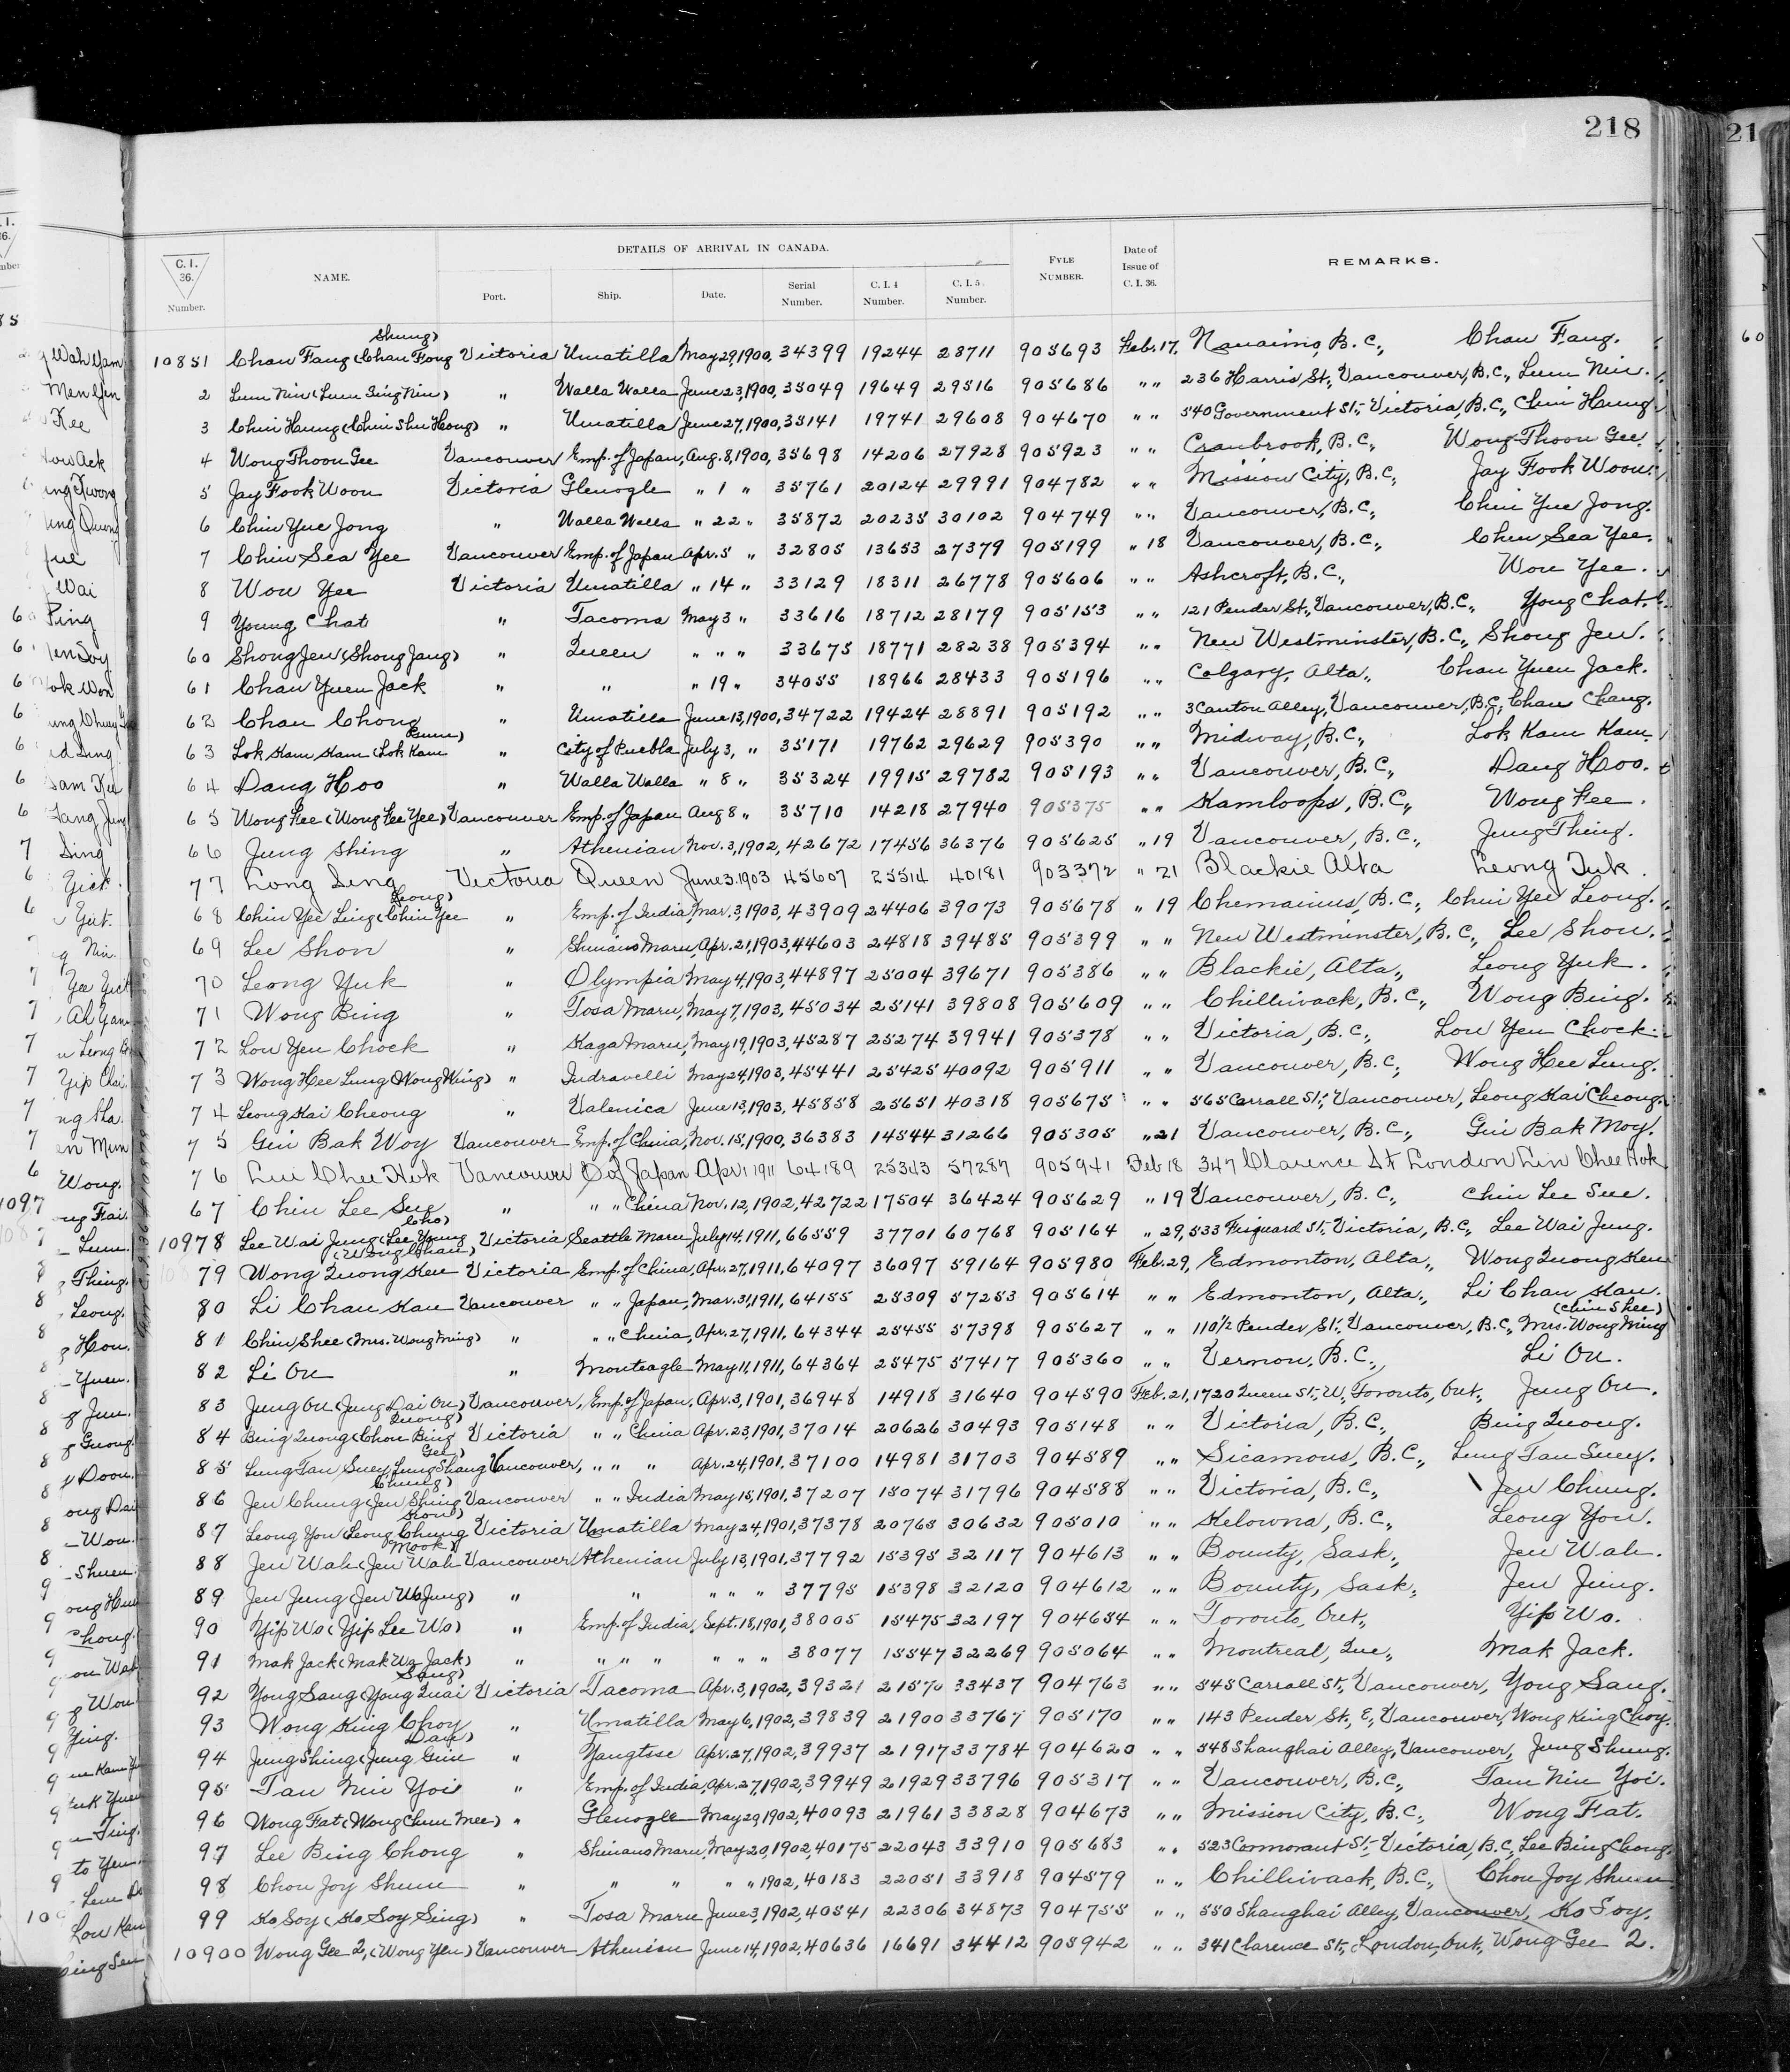 218
DETAILS OF ARRIVAL IN CANADA.
C. I. 36. Number. NAME. Port. Ship. Date. Serial Number. C. I. 4 Number. C. I. 5 Number. FYLE NUMBER. Date of Issue of C. I. 36. REMARKS.
Shung)
10851 Chan Fang (Chan Fong Victoria Umatilla May 29, 1900, 34399 19244 28711 905693 Feb. 17, Nanaimo, B.C., Chan Fang.
2 Lum Nin (Lum Sing Nin) " Walla Walla June 23, 1900, 35049 19649 29516 905686 " " 236 Harris St., Vancouver, B.C., Lum Nin.
3 Chin Hung (Chin Shu Heong) " Umatilla June 27, 1900, 35141 19741 29608 904670 " " 540 Government St., Victoria, B.C., Chin Hung
4 Wong Thoon Gee Vancouver Emp. of Japan, Aug. 8, 1900, 35698 14206 27928 905923 " " Cranbrook, B.C., Wong Thoon Gee.
5 Jay Fook Woon Victoria Glenogle " 1 " 35761 20124 29991 904782 " " Mission City, B.C., Jay Fook Woon.
6 Chin Yue Jong " Walla Walla " 22 " 35872 20235 30102 904749 " " Vancouver, B.C., Chin Yue Jong.
7 Chin Sea Yee Vancouver Emp. of Japan Apr. 5 " 32805 13653 27379 905199 " 18 Vancouver, B.C., Chin Sea Yee.
8 Wou Yee Victoria Umatilla " 14 " 33129 18311 26778 905606 " " Ashcroft, B.C., Wou Yee.
9 Young Chat " Tacoma May 3 " 33616 18712 28179 905153 " " 121 Pender St., Vancouver, B.C., Yong Chat.
60 Shong Jew (Shong Jang) " Queen " " " 33675 18771 28238 905394 " " New Westminster, B.C., Shong Jew.
61 Chan Yuen Jack " " " 19 " 34055 18966 28433 905196 " " Calgary, Alta., Chan Yuen Jack.
62 Chan Chong " Umatilla June 13, 1900, 34722 19424 28891 905192 " " 3 Canton Alley, Vancouver, B.C., Chan Chang.
63 Lok Kam Kam (Lok Kam " City of Puebla July 3, " 35171 19762 29629 905390 " " Midway, B.C., Lok Kam Kam.
64 Dang Hoo " Walla Walla " 8 " 35324 19915 29782 905193 " " Vancouver, B.C., Dang Hoo.
65 Wong Fee (Wong Fee Yee) Vancouver Emp. of Japan Aug 8 " 35710 14218 27940 905375 " " Kamloops, B.C., Wong Fee.
66 Jung Shing " Athenian Nov. 3, 1902, 42672 17456 36376 905625 " 19 Vancouver, B.C., Jung Thing.
77 Long Sing Victoria Queen June 3. 1903 45607 25514 40181 903372 " 21 Blackie Alta Leong Tuk.
Leong)
68 Chin Yee Ling (Chin Yee " Emp. of India, Mar. 3, 1903, 43909 24406 39073 905678 " 19 Chemainus, B.C., Chin Yee Leong.
69 Lee Shon " Shinano Maru, Apr. 21, 1903, 44603 24818 39485 905399 " " New Westminster, B.C., Lee Shon.
70 Leong Yuk " Olympia May 4, 1903, 44897 25004 39671 905386 " " Blackie, Alta., Leong Yuk.
71 Wong Bing " Tosa Maru, May 7, 1903, 45034 25141 39808 905609 " " Chilliwack, B.C., Wong Bing.
72 Lou Yen Chock " Kaga Maru, May 19, 1903, 45287 25274 39941 905378 " " Victoria, B.C., Lou Yen Chock.
73 Wong Hee Lung (Wong Wing) " Indravelli May 24, 1903, 45441 25425 40092 905911 " " Vancouver, B.C., Wong Hee Lung.
74 Leong Kai Cheong " Valenica June 13, 1903, 45858 25651 40318 905675 " " 565 Carrall St., Vancouver, Leong Kai Cheong.
75 Gin Bak Woy Vancouver Emp. of China, Nov. 15, 1900, 36383 14544 31266 905305 " 21 Vancouver, B.C., Gin Bak Moy.
76 Lui Chee Hok Vancouver E of Japan Apr 1 1911 64189 25343 57287 905941 Feb 18 347 Clarence St London Lin Chee Hok
67 Chin Lee Sue " " " China Nov. 12, 1902, 42722 17504 36424 905629 " 19 Vancouver, B.C., Chin Lee Sue.
Cho)
10978 Lee Wai Jung (Lee Young Victoria Seattle Maru July 14, 1911, 66559 37701 60768 905164 " 29, 533 Fisguard St., Victoria, B.C., Lee Wai Jung.
(Wong Chan)
79 Wong Quong Ken Victoria Emp. of China, Apr. 27, 1911, 64097 36097 59164 905980 Feb. 29, Edmonton, Alta., Wong Quong Ken
80 Li Chan Kau Vancouver " " Japan, Mar. 31, 1911, 64155 25309 57253 905614 " " Edmonton, Alta., Li Chan Kau.
(Chin Shee)
81 Chin Shee (Mrs. Wong Ming) " " " China, Apr. 27, 1911, 64344 25455 57398 905627 " " 110½ Pender St., Vancouver, B.C., Mrs. Wong Ming
82 Li On " Monteagle May 11, 1911, 64364 25475 57417 905360 " " Vernon, B.C., Li On.
83 Jung On (Jung Dai On) Vancouver, Emp. of Japan, Apr. 3, 1901, 36948 14918 31640 904590 Feb. 21, 1720 Queen St., W., Toronto, Ont., Jung On.
Quong)
84 Bing Quong (Chou Bing Victoria " " China Apr. 23, 1901, 37014 20626 30493 905148 " " Victoria, B.C., Bing Quong.
Gee)
85 Lung Tan Suey (Lung Shang Vancouver, " " " Apr. 24, 1901, 37100 14981 31703 904589 " " Sicamous, B.C., Lung Tan Suey.
Chung)
86 Jew Chung (Jew Shing Vancouver " " India May 15, 1901, 37207 15074 31796 904588 " " Victoria, B.C., Jew Chung.
Kow)
87 Leong You (Leong Chung Victoria Umatilla May 24, 1901, 37378 20765 30632 905010 " " Kelowna, B.C., Leong You.
Mook)
88 Jew Wah (Jew Wah Vancouver Athenian July 13, 1901, 37792 15395 32117 904613 " " Bounty, Sask., Jew Wah.
89 Jew Jung (Jew Wo Jung) " " " " " 37795 15398 32120 904612 " " Bounty, Sask., Jew Jung.
90 Yip Wo (Yip Lee Wo) " Emp. of India, Sept. 18, 1901, 38005 15475 32197 904654 " " Toronto, Ont., Yip Wo.
91 Mak Jack (Mak Wa Jack) " " " " " " " 38077 15547 32269 905064 " " Montreal, Que., Mak Jack.
Sang)
92 Yong Sang (Yong Quai Victoria Tacoma Apr. 3, 1902, 39321 21570 33437 904763 " " 545 Carrall St., Vancouver, Yong Sang.
93 Wong King Choy " Umatilla May 6, 1902, 39839 21900 33767 905170 " " 143 Pender St., E., Vancouver, Wong King Choy.
94 Jung Shing (Jung Gim " Yangtsse Apr. 27, 1902, 39937 21917 33784 904620 " " 548 Shanghai Alley, Vancouver, Jung Shung.
95 Tan Nin Yoi " Emp. of India, Apr. 27, 1902, 39949 21929 33796 905317 " " Vancouver, B.C., Tam Nin Yoi.
96 Wong Fat (Wong Chun Mee) " Glenogle May 29, 1902, 40093 21961 33828 904673 " " Mission City, B.C., Wong Fat.
97 Lee Bing Chong " Shinano Maru, May 20, 1902, 40175 22043 33910 905683 " " 523 Cormorant St., Victoria, B.C., Lee Bing Chong.
98 Chou Joy Shum " " " " " 1902, 40183 22051 33918 904579 " " Chilliwack, B.C., Chou Joy Shum
99 Ko Soy (Ko Soy Sing) " Tosa Maru June 3, 1902, 40541 22306 34873 904755 " " 550 Shanghai Alley, Vancouver, Ko Soy.
10900 Wong Gee 2, (Wong Yen) Vancouver Athenian June 14, 1902, 40636 16691 34412 905942 " " 341 Clarence St., London, Ont., Wong Gee 2.